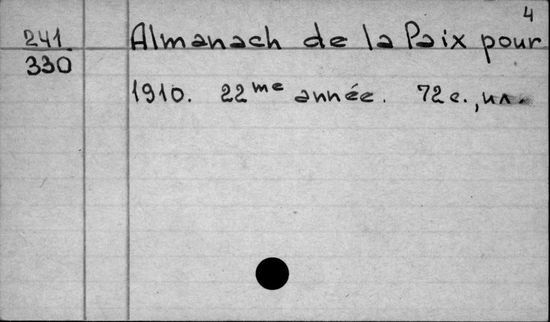 4
241
330
Almanach de la Paix pour
1910. 22me année. 72 c., ил.